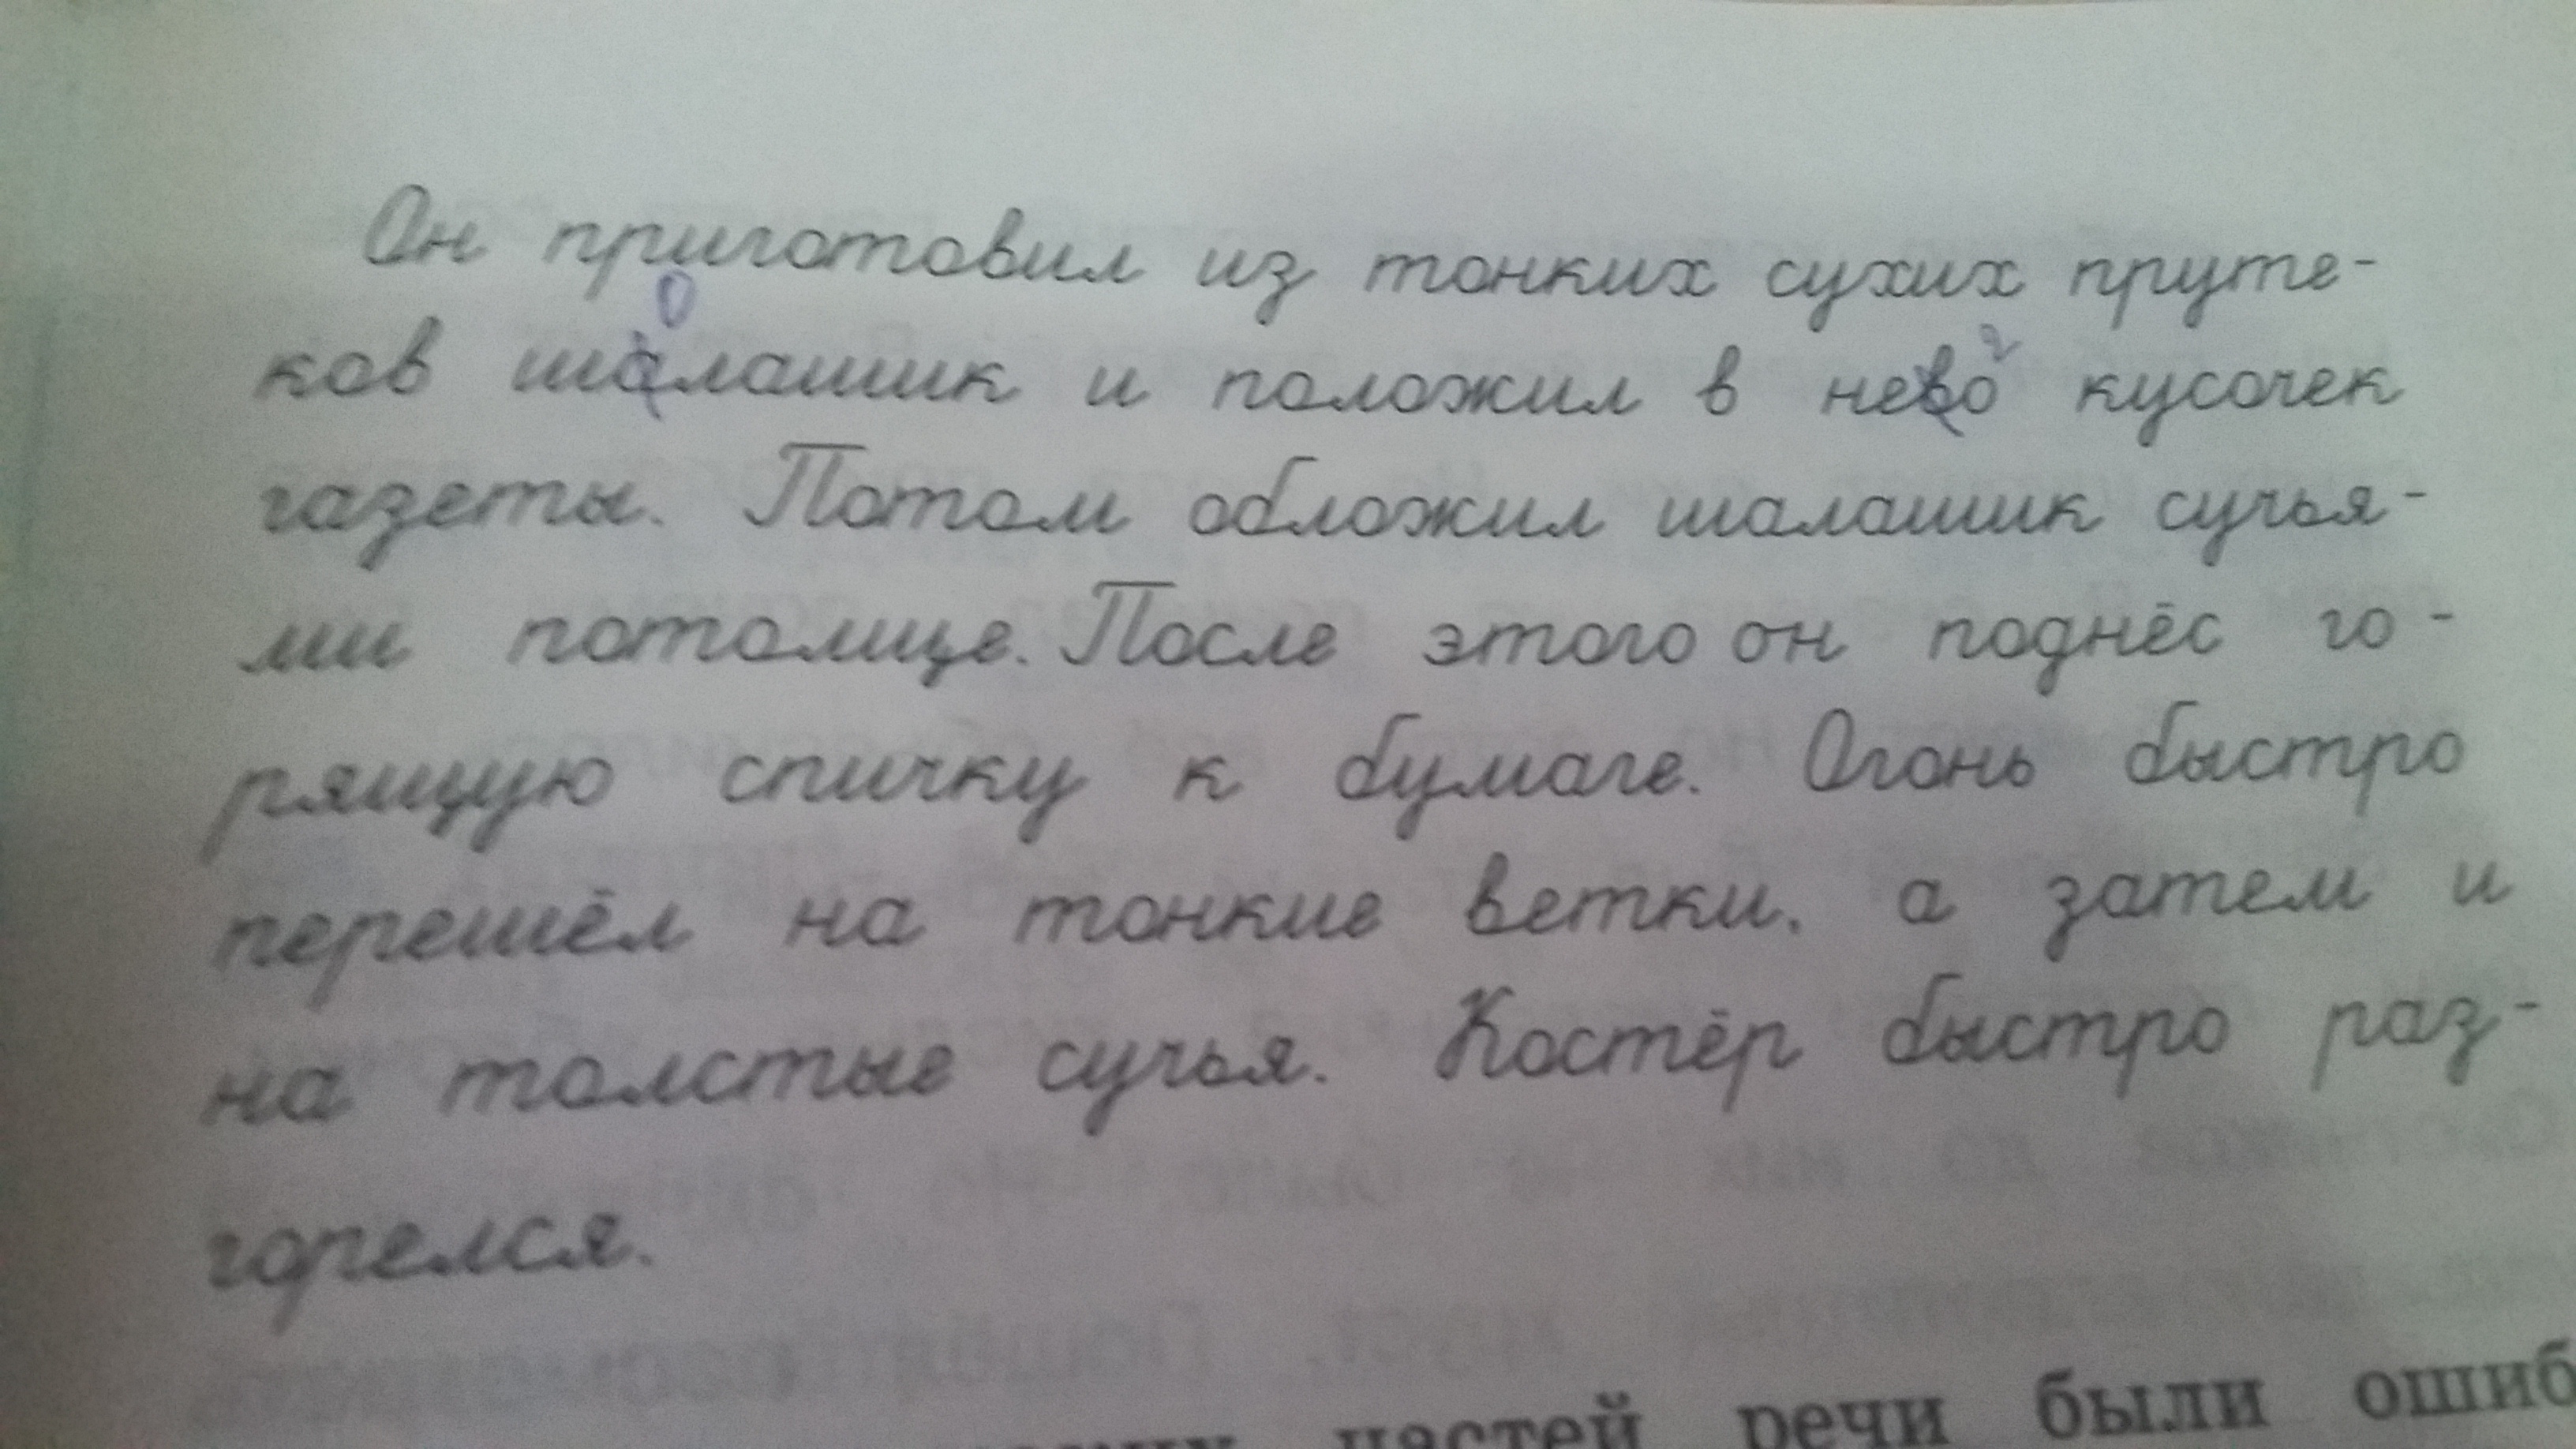 Он приготовил из тонких сухих пруте-
ков шалашик и положил в нево кусочек
газеты. Потом обложил шалашик сучья-
ми потолще. После этого он поднёс го-
рящую спичку к бумаге. Огонь быстро
перешёл на тонкие ветки, а затем и
на толстые сучья. Костёр быстро раз-
горелся.
частей речи были ошиб